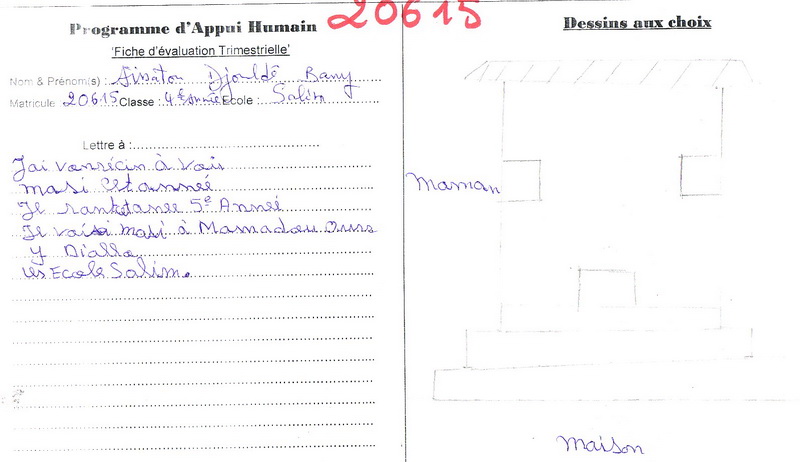 Programme d'Appui Humain
'Fiche d'évaluation Trimestrielle'
20615
Nom & Prénom(s) : Aissatou Djouldé Barry
Matricule 20615 Classe : 4e Année Ecole : Salim
Lettre à :
J'ai vanrécin à Voir
masi Cetanneé
Je ranketanee 5e Anneé
Je vais masi à Mamadou Ours
y Diallo
les Ecole Salim.
Dessins aux choix
maman
maison